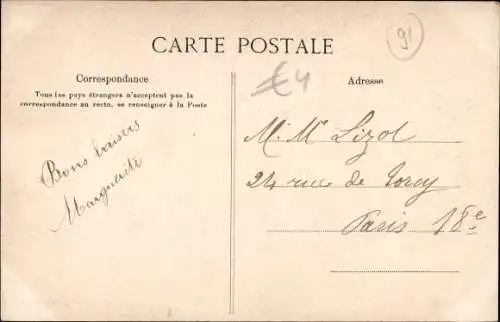 CARTE POSTALE
91
€4
Correspondance
Tous les pays étrangers n'acceptent pas la
correspondance au recto, se renseigner à la Poste
Adresse
Bons baisers
Marguerite
M. Mr Lizol
24 rue de Torcy
Paris 18e